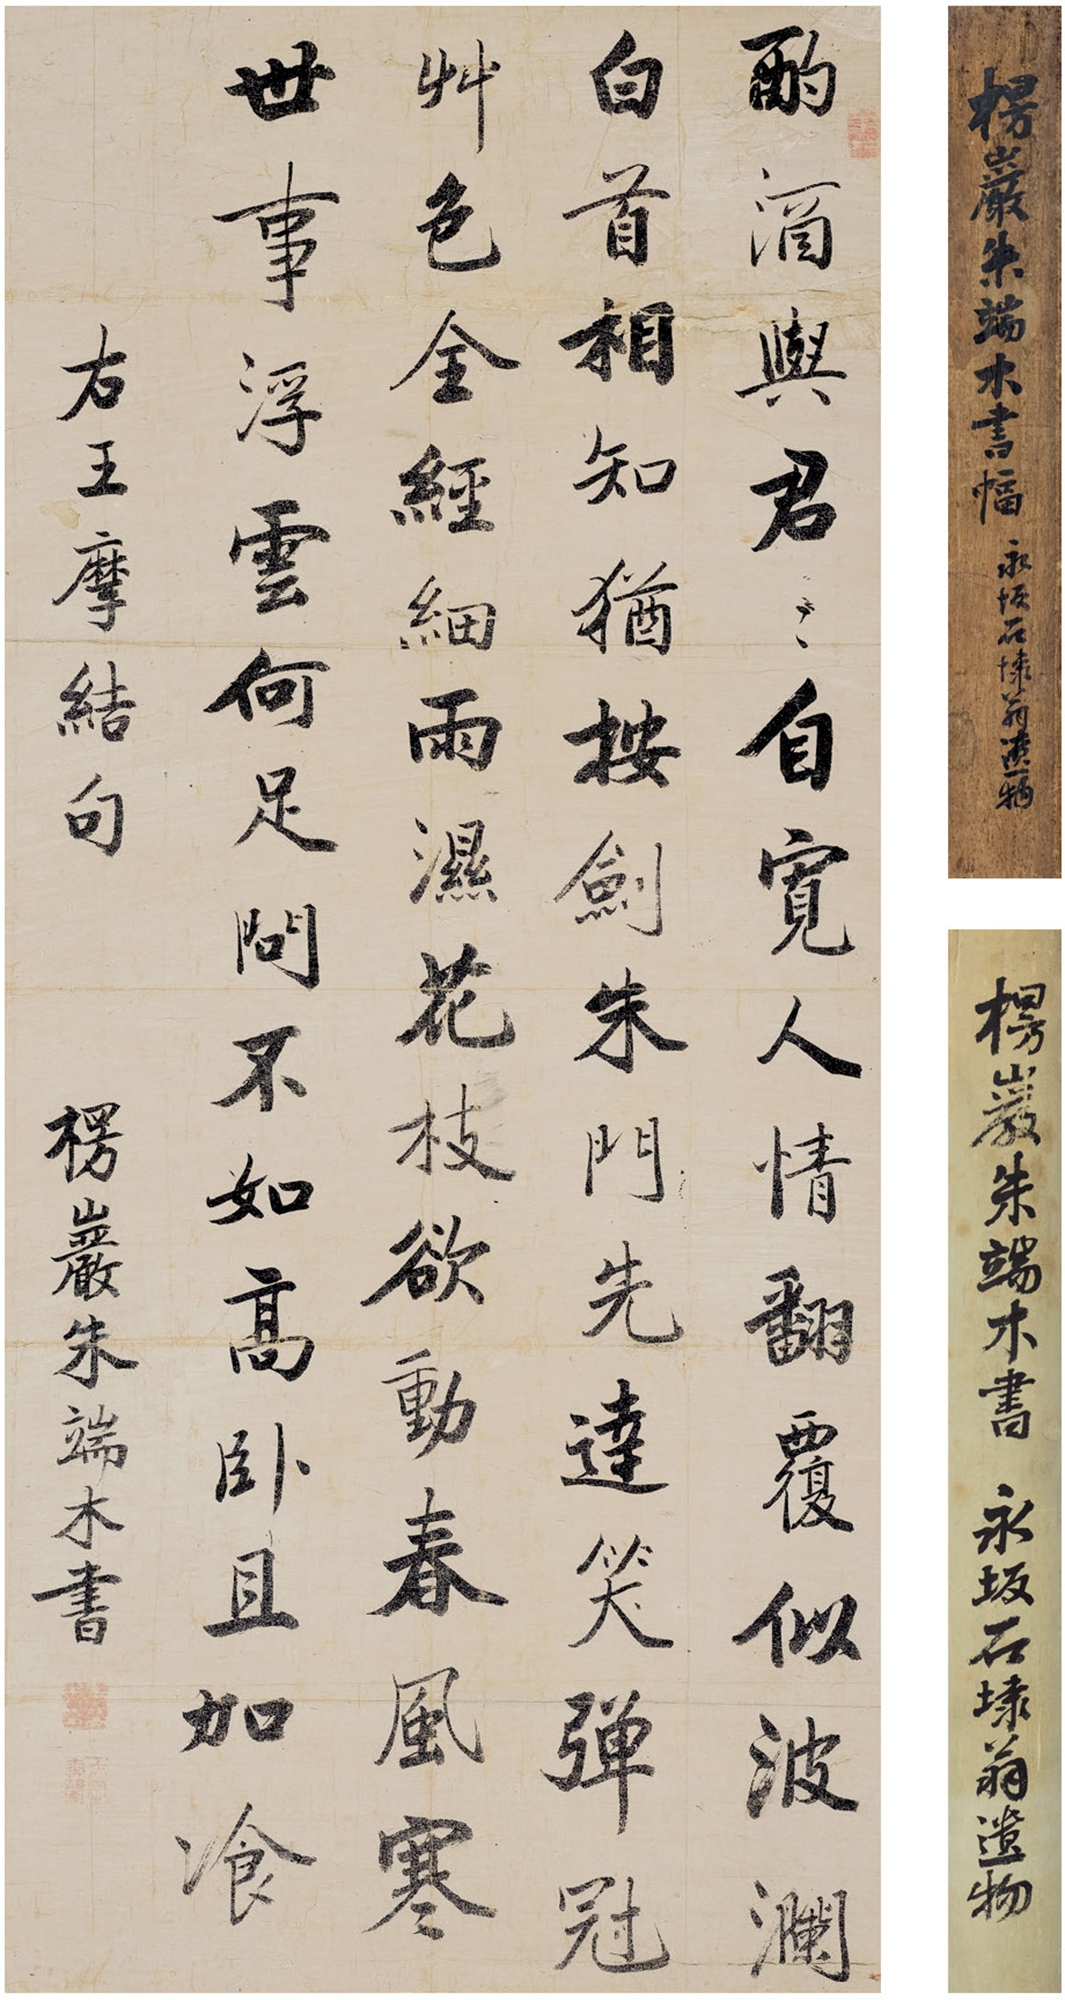 酌酒與君君自寬人情翻覆似波瀾
白首相知猶按劍朱門先達笑彈冠
艸色全經細雨濕花枝欲動春風寒
世事浮雲何足問不如高臥且加飡
右王摩結句
楞巖朱端木書
楞巖朱端木書幅
永坂石埭翁遺物
楞巖朱端木書
永坂石埭翁遺物